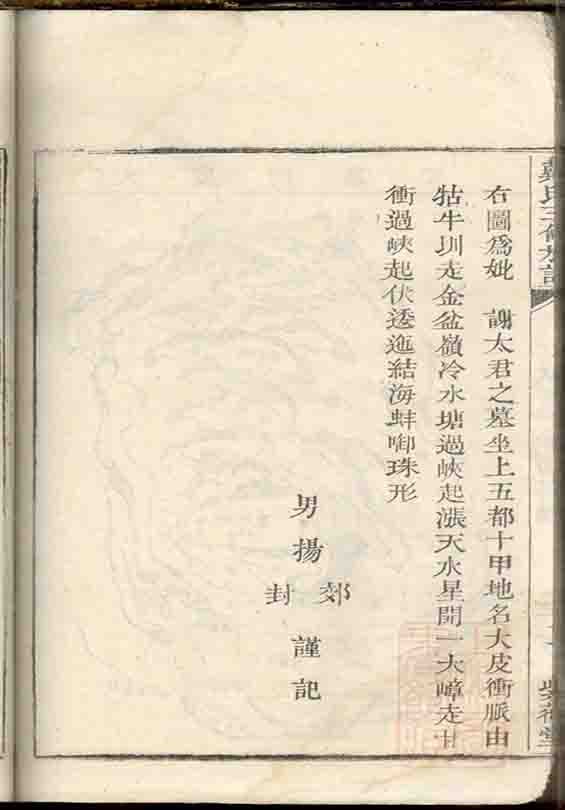 右圖爲妣 謝太君之墓坐上五都十甲地名大皮衝脈由
牯牛圳走金盆嶺冷水塘過峽起漲天水星開一大嶂走廿
衝過峽起伏逶迤結海蚌啣珠形
男揚郊
封
謹記
氏三修